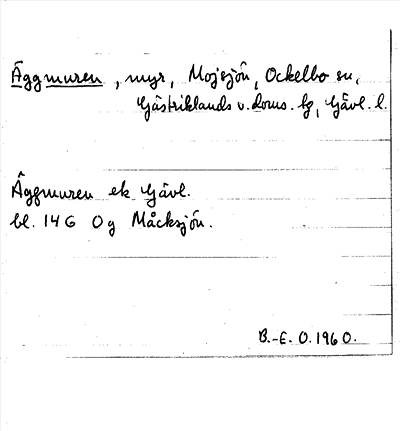 Äggmuren, myr, Mojsjön, Ockelbo sn,
Gästriklands v. doms. lg, Gävl. l.
Äggmuren ek Gävl.
bl. 146 Og Måcksjön.
B.-E. O. 1960.